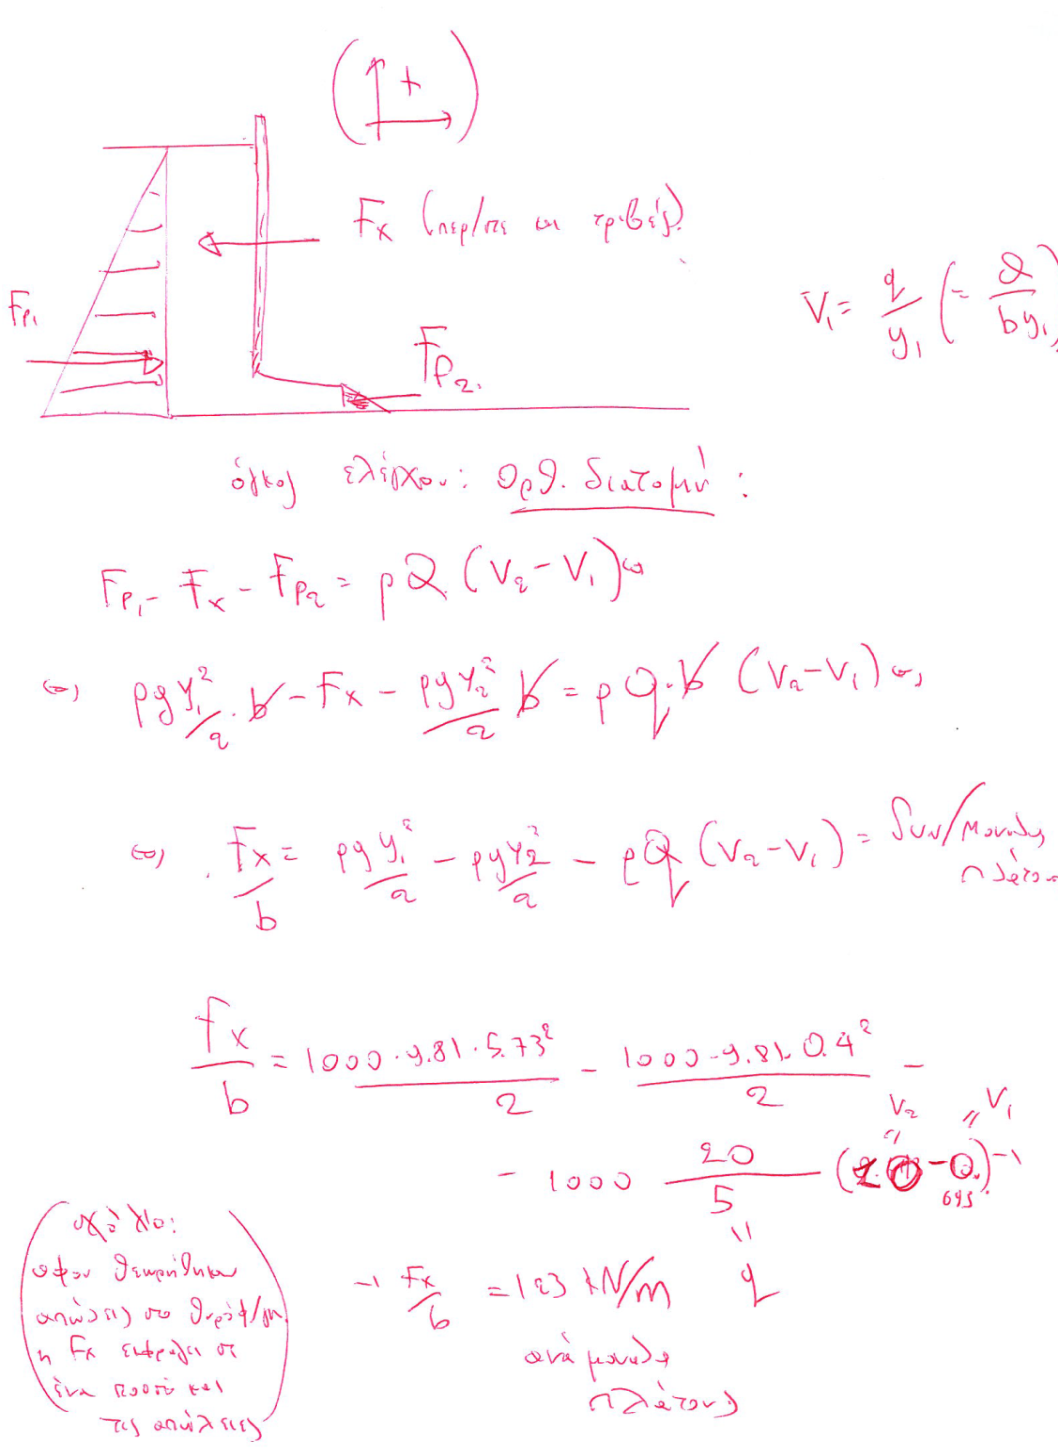 +
Fx (περ/πε οι τριβές)
V₁ = q/y₁ (= Q/by₁)
Fp₁
Fp₂.
όγκος ελέγχου: Ορθ. διατομή:
Fp₁ - Fx - Fp₂ = ρQ (V₂ - V₁) ⇔
⇔ ρgy₁²/2 · b - Fx - ρgy₂²/2 b = ρ q·b (V₂ - V₁) ⇔
⇔ Fx/b = ρgy₁²/2 - ρgy₂²/2 - ρq (V₂ - V₁) = δυν/μονάδα
πλάτους
Fx/b = 1000·9.81·5.73²/2 - 1000·9.81·0.4²/2 -
V₂ V₁
- 1000 20/5 (10 - 0.695) →
q
→ Fx/b = 123 kN/m
ανά μονάδα
πλάτους
σχόλιο:
αφου θεωρήθηκαν
απώλειες στο θυρόφ/μα
η Fx εκφράζει σε
ένα ποσό και
τις απώλειες